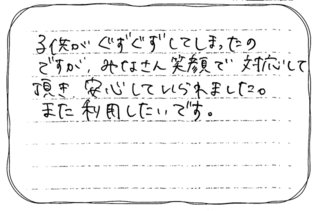 子供がぐずぐずしてしまったの
ですが、みなさん笑顔で対応して
頂き、安心していられました。
また利用したいです。